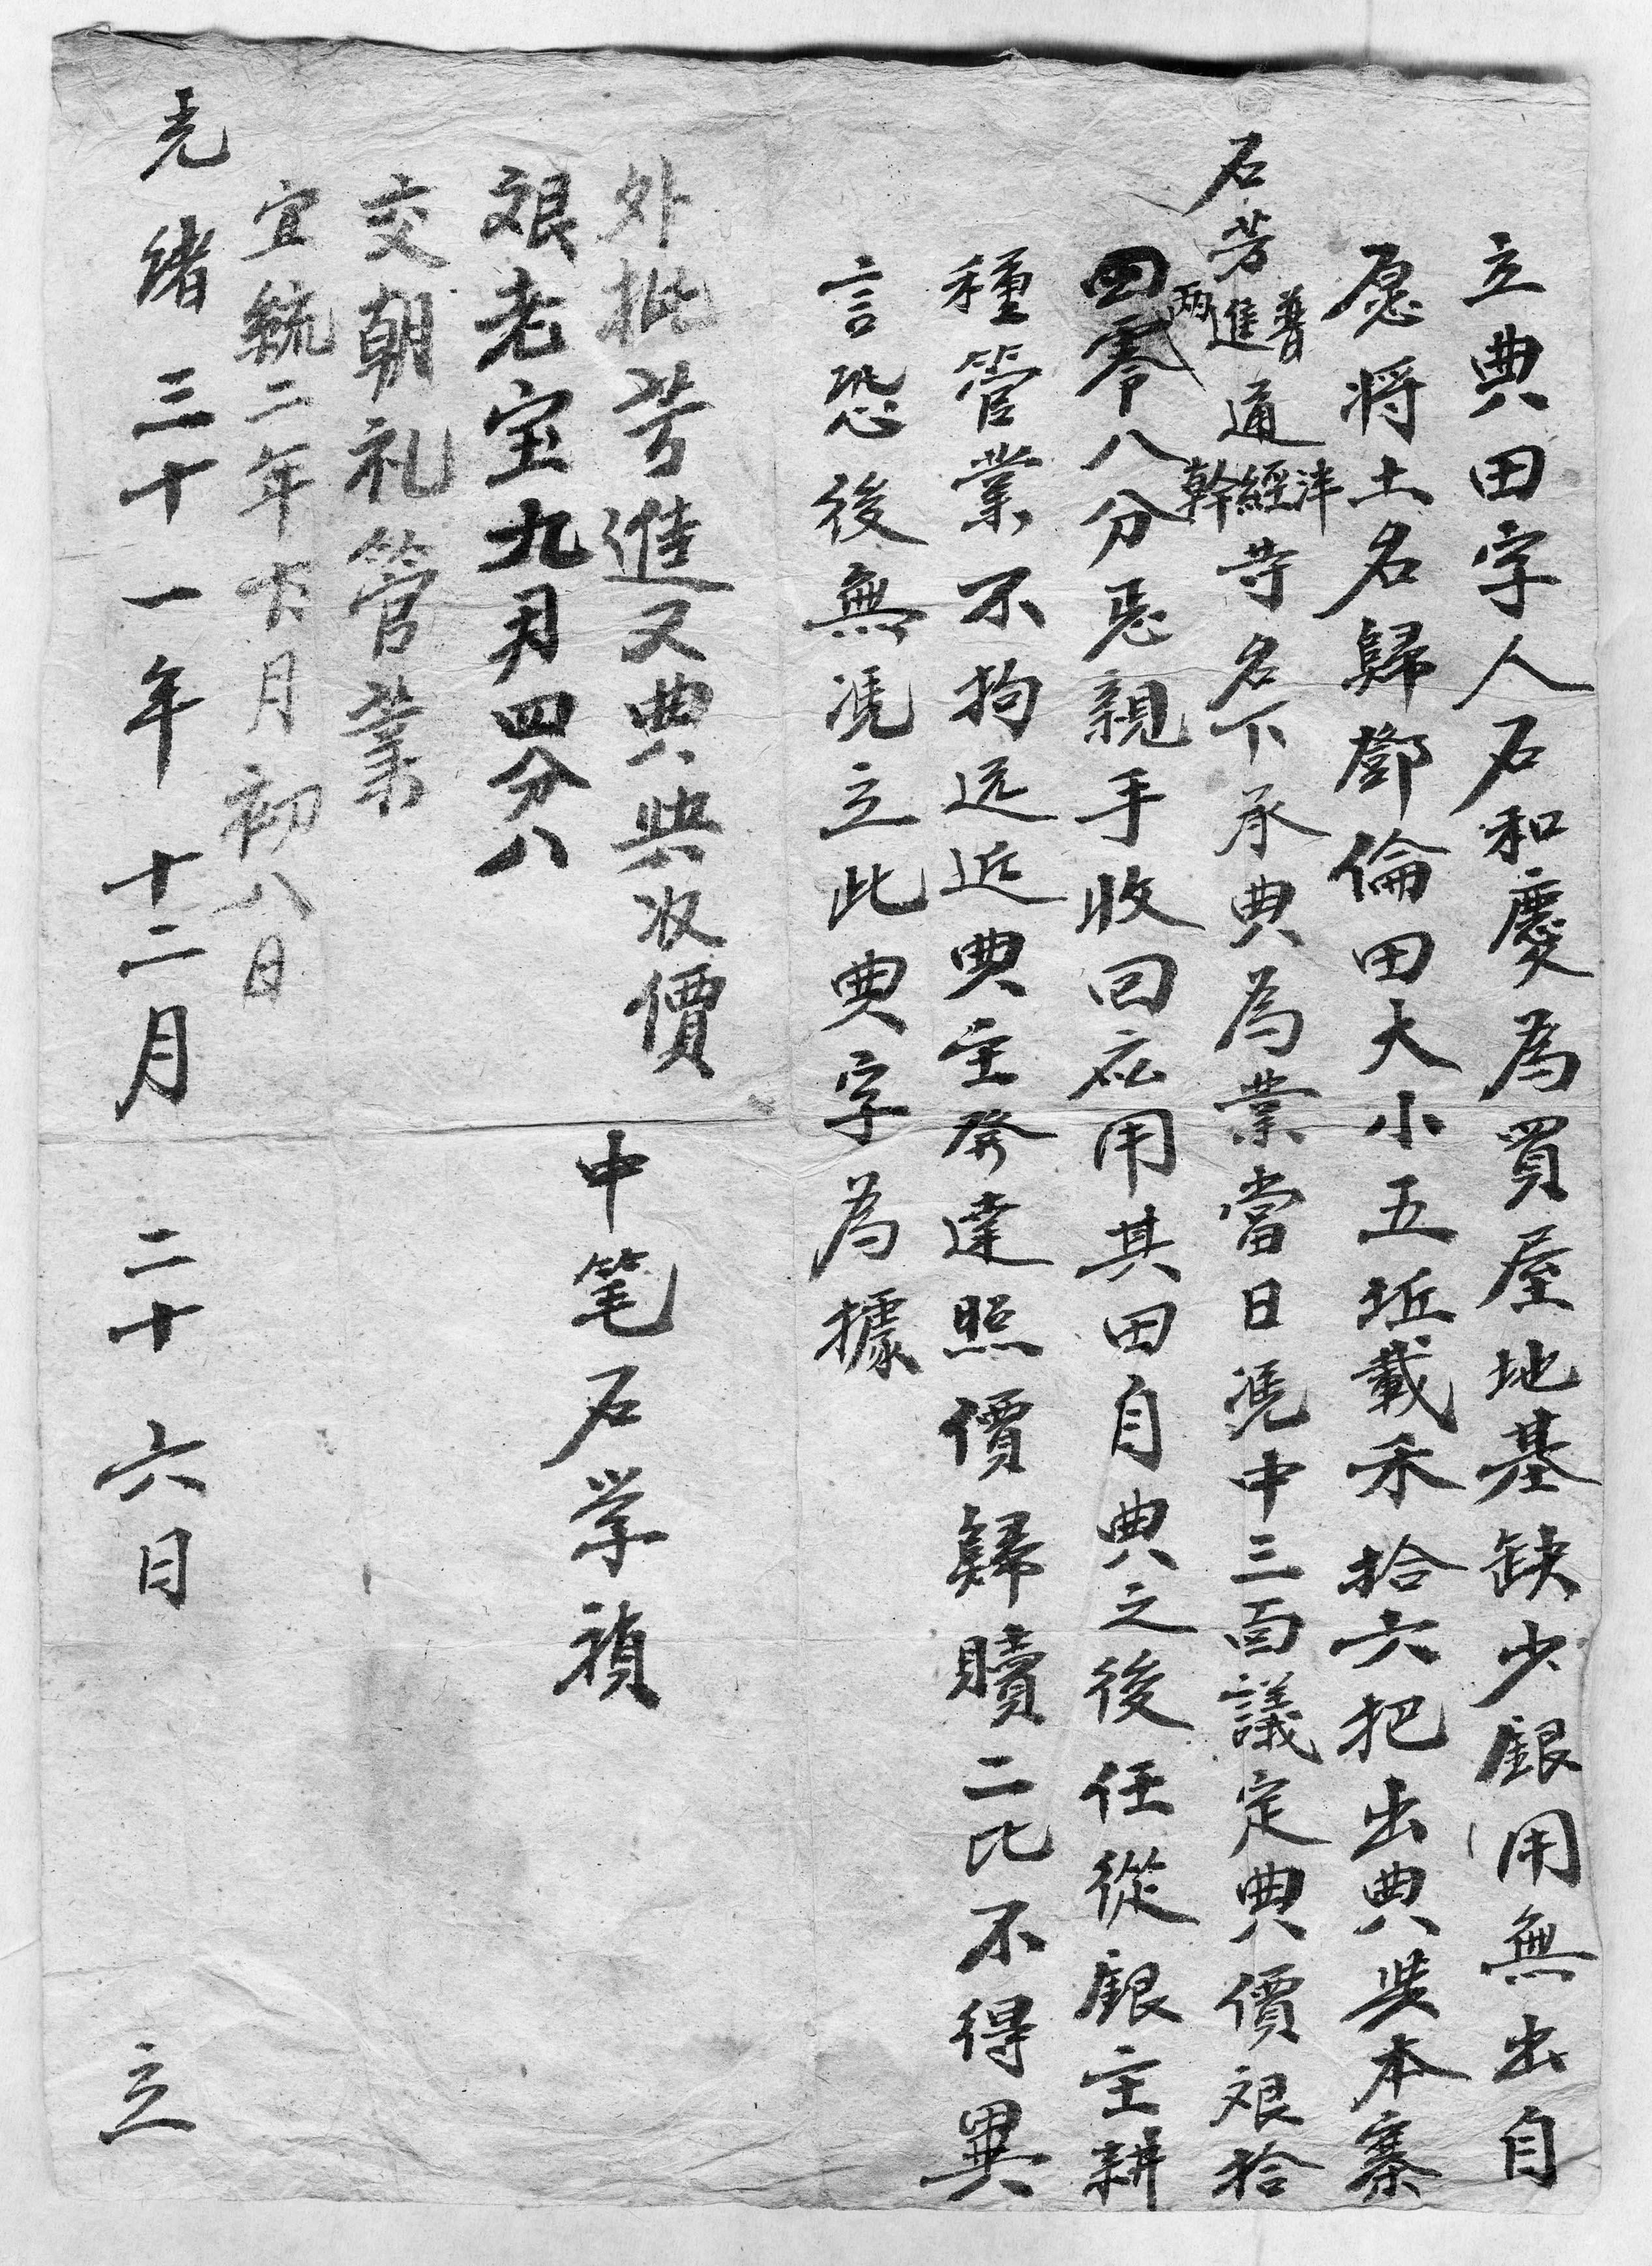 立典田字人石和慶為買屋地基缺少銀用無出自
愿将土名歸鄧倫田大小五坵載禾拾六把出典與本寨
石芳進普通幹經沣等名下承典為業當日凴中三面議定典價艮拾
四両零八分忢親手收回応用其田自典之後任從銀主耕
種管業不拘远近典主發達照價歸贖二比不得異
言恐後無凴立此典字為據
外批芳進又典與收價
艮老宝九刄四分八
交朝礼管業
宣統二年十月初八日
中笔石学禎
光緒三十一年十二月二十六日立